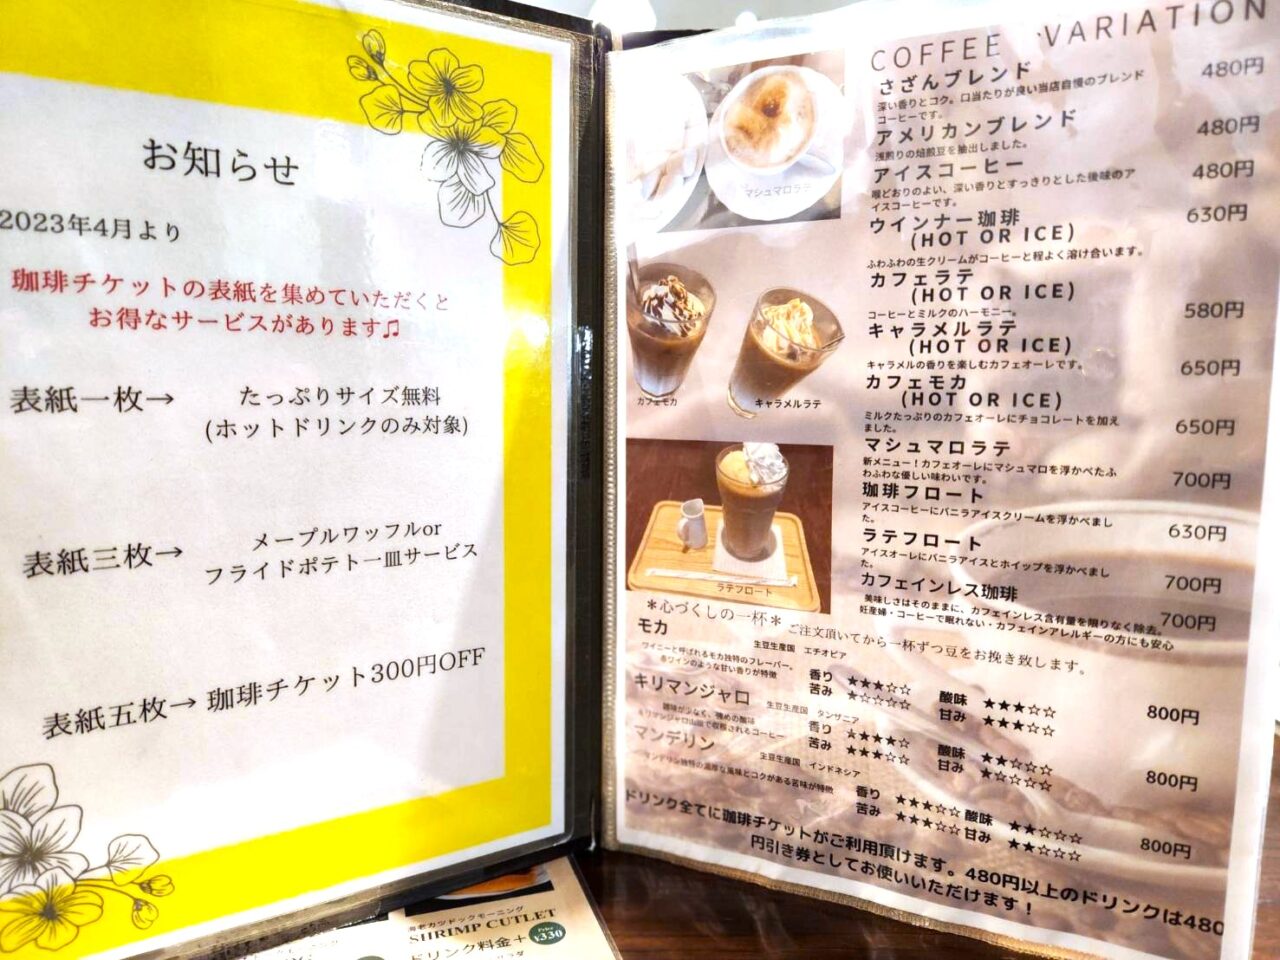 お知らせ
2023年4月より
珈琲チケットの表紙を集めていただくと
お得なサービスがあります♫
表紙一枚→ たっぷりサイズ無料
(ホットドリンクのみ対象)
表紙三枚→ メープルワッフルor
フライドポテト一皿サービス
表紙五枚→ 珈琲チケット300円OFF
COFFEE VARIATION
さざんブレンド 480円
深い香りとコク。口当たりが良い当店自慢のブレンド
コーヒーです。
アメリカンブレンド 480円
浅煎りの焙煎豆を抽出しました。
アイスコーヒー 480円
喉どおりのよい、深い香りとすっきりとした後味のア
イスコーヒーです。
ウインナー珈琲 630円
(HOT OR ICE)
ふわふわの生クリームがコーヒーと程よく溶け合います。
カフェラテ
(HOT OR ICE) 580円
コーヒーとミルクのハーモニー。
キャラメルラテ
(HOT OR ICE) 650円
キャラメルの香りを楽しむカフェオーレです。
カフェモカ
(HOT OR ICE) 650円
ミルクたっぷりのカフェオーレにチョコレートを加え
ました。
マシュマロラテ 700円
新メニュー！カフェオーレにマシュマロを浮かべたふ
わふわな優しい味わいです。
珈琲フロート 630円
アイスコーヒーにバニラアイスクリームを浮かべまし
た。
ラテフロート 700円
アイスオーレにバニラアイスとホイップを浮かべまし
た。
カフェインレス珈琲 700円
美味しさはそのままに、カフェインレス含有量を限りなく除去。
妊産婦・コーヒーで眠れない・カフェインアレルギーの方にも安心
マシュマロラテ
カフェモカ
キャラメルラテ
ラテフロート
＊心づくしの一杯＊ ご注文頂いてから一杯ずつ豆をお挽き致します。
モカ 生豆生産国 エチオピア
ワイニーと呼ばれるモカ独特のフレーバー。
赤ワインのような甘い香りが特徴
香り ★★★☆☆ 酸味 ★★★☆☆
苦み ★☆☆☆☆ 甘み ★★★☆☆ 800円
キリマンジャロ 生豆生産国 タンザニア
雑味が少なく、強めの酸味
キリマンジャロ山麓で収穫されるコーヒー
香り ★★★★☆ 酸味 ★★☆☆☆
苦み ★★★☆☆ 甘み ★☆☆☆☆ 800円
マンデリン 生豆生産国 インドネシア
マンデリン独特の濃厚な風味とコクがある苦味が特徴
香り ★★★☆☆ 酸味 ★★☆☆☆
苦み ★★★☆☆ 甘み ★★☆☆☆ 800円
ドリンク全てに珈琲チケットがご利用頂けます。480円以上のドリンクは480
円引き券としてお使いいただけます！
海老カツドックモーニング
SHRIMP CUTLET
ドリンク料金＋ Price ¥330